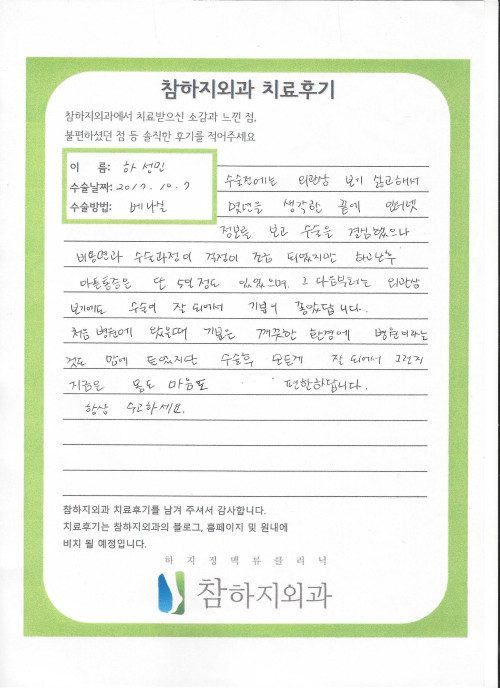 참하지외과 치료후기
참하지외과에서 치료받으신 소감과 느낀 점,
불편하셨던 점 등 솔직한 후기를 적어주세요
이 름: 하성민
수술날짜: 2017. 10. 7
수술방법: 베나실
수술전에는 외관상 보기 싫고해서
몇번을 생각한 끝에 인터넷
정보를 보고 수술을 결심했으나
비용면과 수술과정이 걱정이 조금 되었지만 하고난후
아픈통증은 단 5일정도 있었으며. 그 다음부터는 외관상
보기에도 수술이 잘 되어서 기분이 좋았답니다.
처음 병원에 왔을때 기분은 깨끗한 환경에 병원이라는
것도 맘에 들었지만 수술후 모든게 잘 되어서 그런지
지금은 몸도 마음도 편안하답니다.
항상 수고하세요.
참하지외과 치료후기를 남겨 주셔서 감사합니다.
치료후기는 참하지외과의 블로그, 홈페이지 및 원내에
비치 될 예정입니다.
하지정맥류클리닉
참하지외과